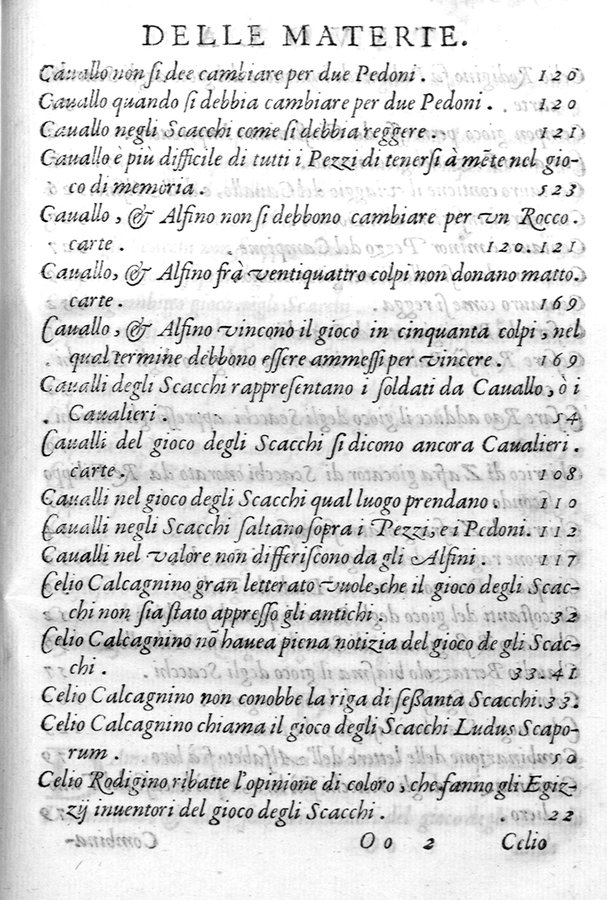 DELLE MATERIE.
Cauallo non ſi dee cambiare per due Pedoni. 120
Cauallo quando ſi debbia cambiare per due Pedoni. 120
Cauallo negli Scacchi come ſi debbia reggere. 121
Cauallo è più difficile di tutti i Pezzi di tenerſi à mẽte nel gio-
co di memoria. 523
Cauallo, & Alfino non ſi debbono cambiare per vn Rocco.
carte. 120.121
Cauallo, & Alfino frà ventiquattro colpi non donano matto.
carte. 169
Cauallo, & Alfino vincono il gioco in cinquanta colpi, nel
qual termine debbono eſſere ammeſſi per vincere. 169
Caualli degli Scacchi rappreſentano i ſoldati da Cauallo, ò i
Caualieri. 54
Caualli del gioco degli Scacchi ſi dicono ancora Caualieri.
carte. 108
Caualli nel gioco degli Scacchi qual luogo prendano. 110
Caualli negli Scacchi ſaltano ſopra i Pezzi, e i Pedoni. 112
Caualli nel valore non differiſcono da gli Alfini. 117
Celio Calcagnino gran letterato vuole, che il gioco degli Scac-
chi non ſia ſtato appreſſo gli antichi. 32
Celio Calcagnino nõ hauea piena notizia del gioco de gli Scac-
chi. 33.41
Celio Calcagnino non conobbe la riga di ſeßanta Scacchi. 33.
Celio Calcagnino chiama il gioco degli Scacchi Ludus Scapo-
rum. 50
Celio Rodigino ribatte l'opinione di coloro, che fanno gli Egiz-
zij inuentori del gioco degli Scacchi. 22
Oo 2 Celio